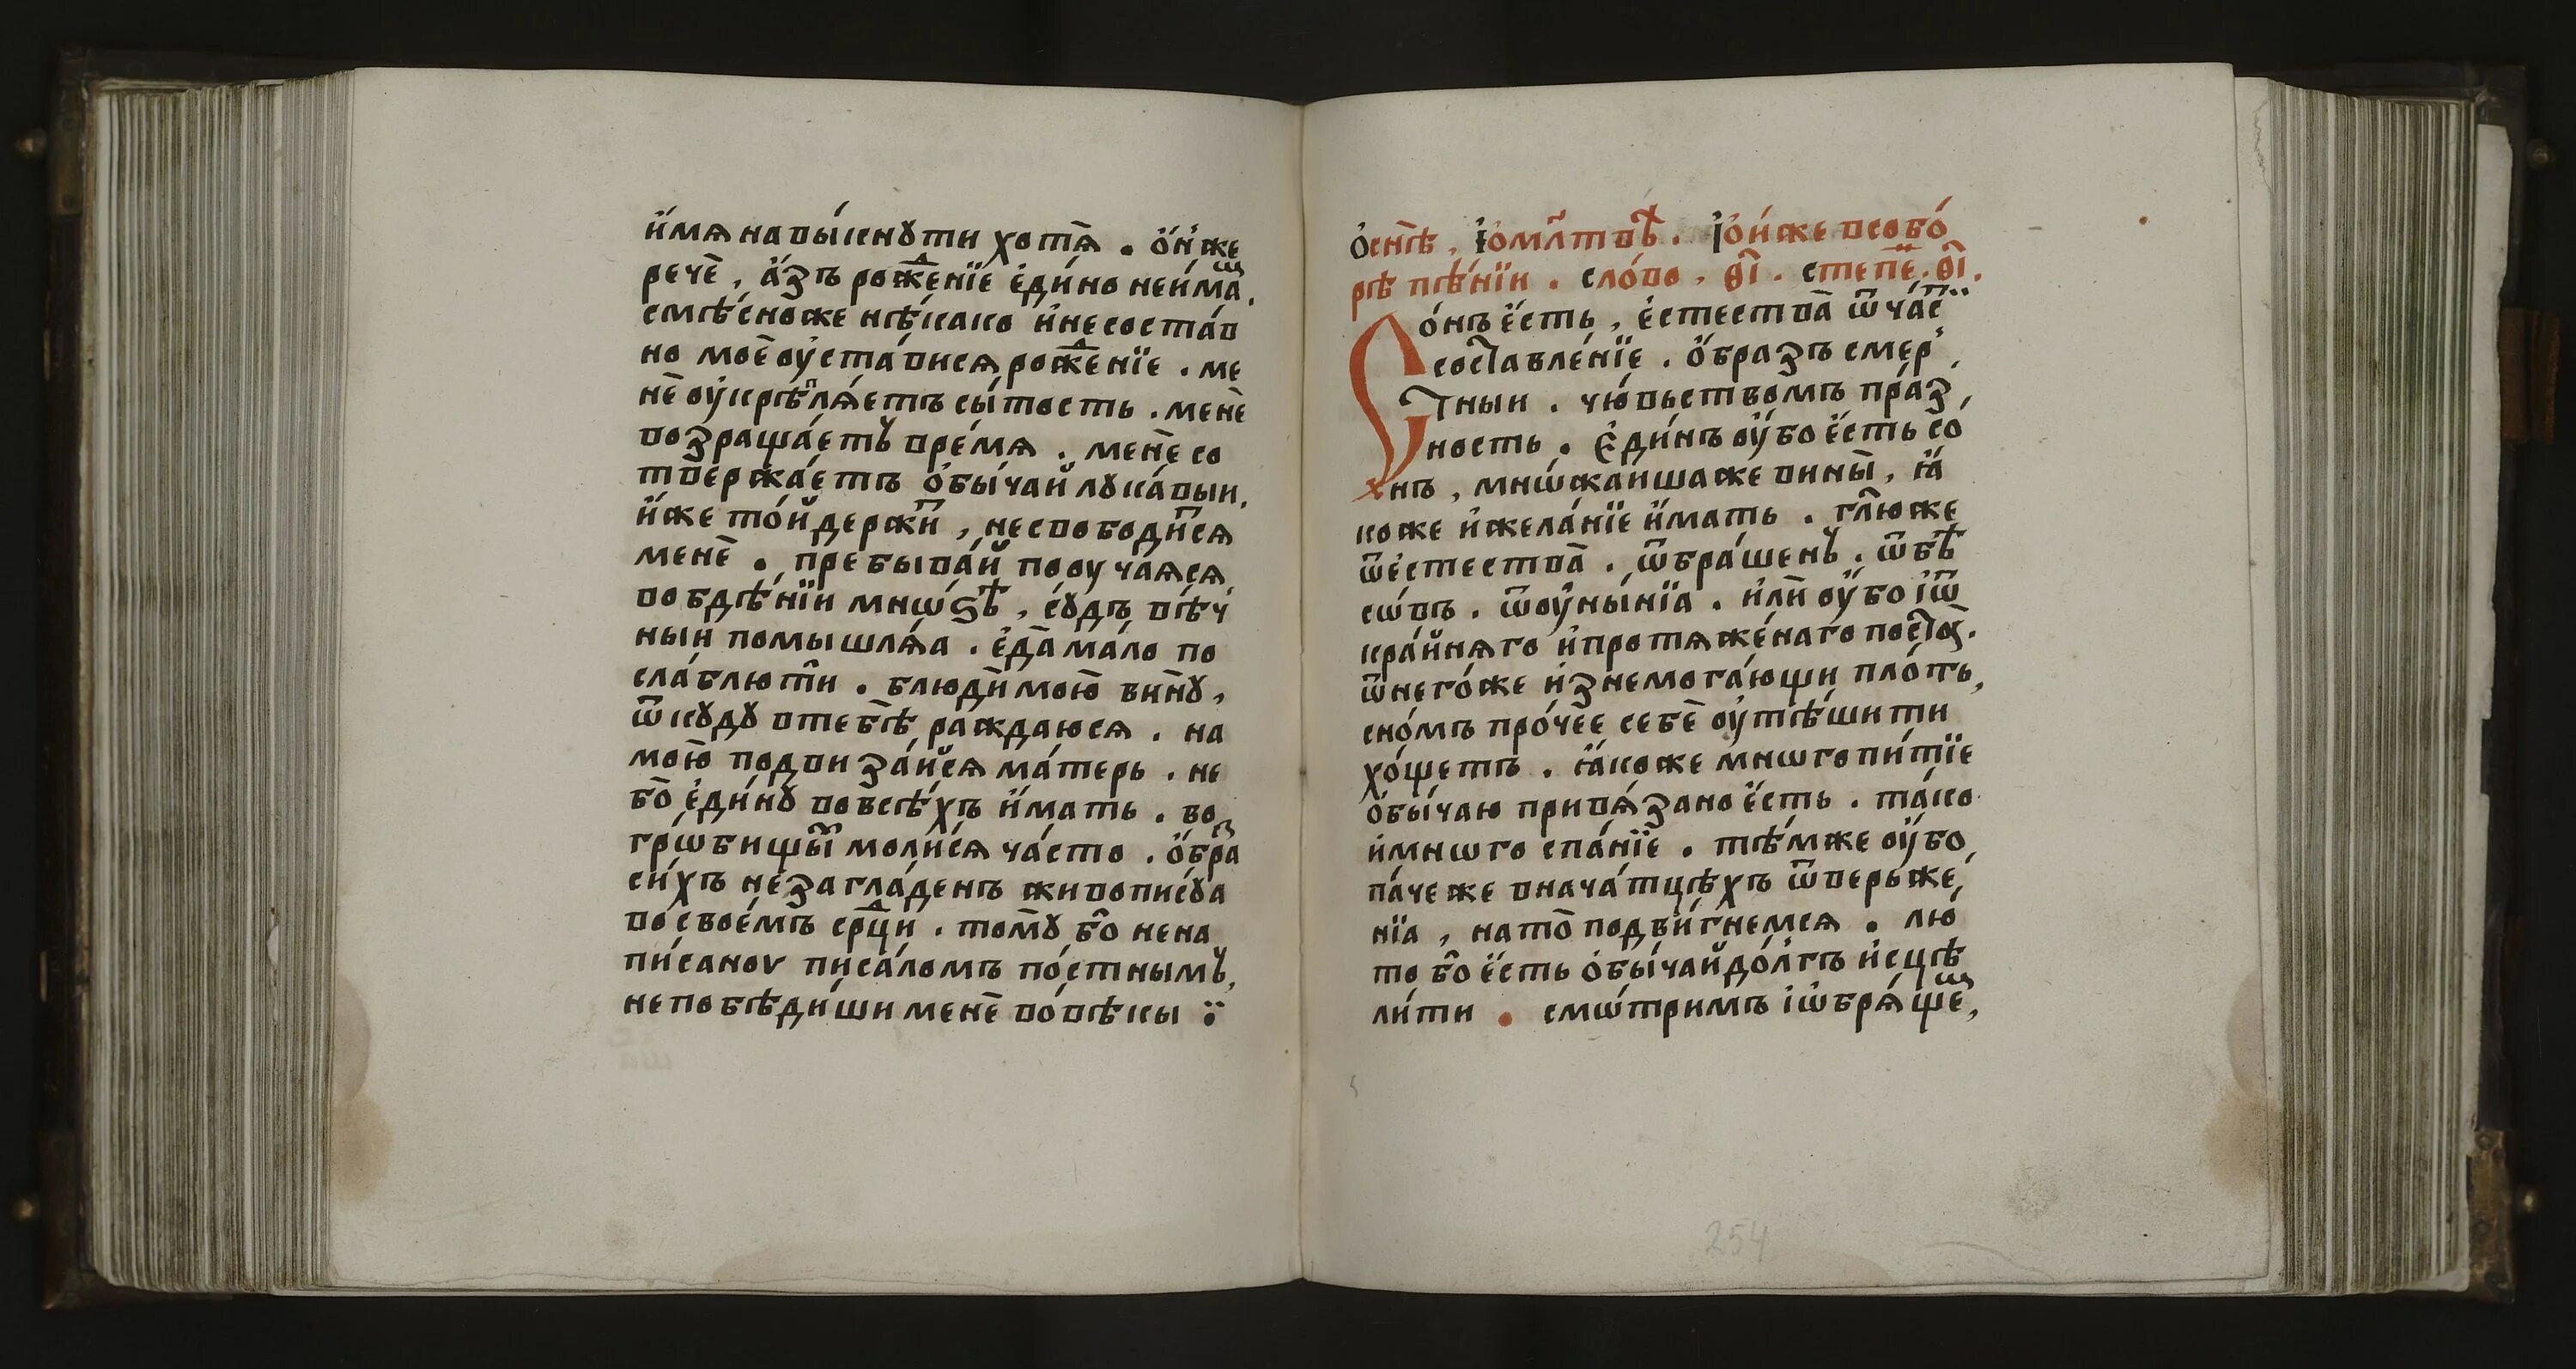 и҆́мѧ навы́кнꙋти хотѧ̀ . ѻ҆́н же
речѐ , а҆́зъ рожⷣе́нїе є҆ди́но неи́маⷨ .
смѣ́сно же нѣ́како и҆ несоста́в
но моѐ ᲂу҆ста́висѧ рожⷣе́нїе . ме
нѐ ᲂу҆крѣплѧ́етъ сы́тость . менѐ
возраща́етъ вре́мѧ . менѐ со
твержа́етъ ѻ҆бы́чай лꙋка́выи ,
и҆́же то́й держи̑ , несвободи́сѧ
менѐ . пребыва́й поᲂучаѧсѧ
во бдѣ́нїи мнѡ́ѕѣ , сꙋ́дъ вѣ́ч
ныи помышлѧ́а . є҆да̀ ма́ло по
сла́блю ти̑ . блюди̑ мою̀ вин̀ꙋ ,
ѿ кꙋдꙋ втебѣ̀ раждаюсѧ . на
мою̀ подвиза́йсѧ ма́терь . не
бо̀ є҆ди́нꙋ во всѣ́хъ и҆́мать . во
грѡ́бищы̑ моли́сѧ ча́сто . ѻ҆́браⷥ
си́хъ не́загла́денъ живописꙋ́а
во свое́мъ срⷣци . том̀ꙋ бо̑ нена
пи́санов писа́ломъ по́стнымъ ,
не побѣди́ши менѐ во́вѣкы ⁘
ѻ҆ снѣ̀ , і҆ ѻ҆ мл҃твѣ . і҆ ѻ҆ и́же всобо́
рѣ пѣ́нїи . сло́во , ѳ҃і . степе́ . ѳ҃і .
Со́нъ є҆́сть , є҆стества̀ ѿ ча́с
составле́нїе . ѻ҆́бразъ смер ,
тныи . чю́вьствомъ пра́з ,
ность . є҆ди́нъ ᲂу҆́бо є҆́сть со́
нъ , мнѡ́жаиша же вины̀ , ꙗ҆́
коже и҆ жела́нїе и҆́мать . гл҃ю же
ѿ є҆стества̀ . ѿ бра́шенъ . ѿ бѣ
сѡ́въ . ѿ ᲂу҆ны́нїа . и҆лѝ ᲂу҆́бо і҆ ѿ
кра́йнѧго и҆ протѧже́наго постⷭ҇а .
ѿ него́же и҆знемога́ющи пло́ть ,
сно́мъ про́чее себѐ ᲂу҆тѣ́шити
хо́щетъ . ꙗ҆́коже мнѡгопи́тїе
ѻ҆бы́чаю привѧ́зано є҆́сть . та́ко
и҆ мнѡго спа́нїе . тѣ́мже ᲂу҆́бо ,
па́че же внача́тцѣхъ ѿверьже́ ,
нїа , на то̀ подви́гнемсѧ . лю́
то бо̑ є҆́сть ѻ҆бы́чай до́лгъ и҆сцѣ
ли́ти . смѡ́тримъ і҆ ѡ҆брѧ́щеⷨ ,
254